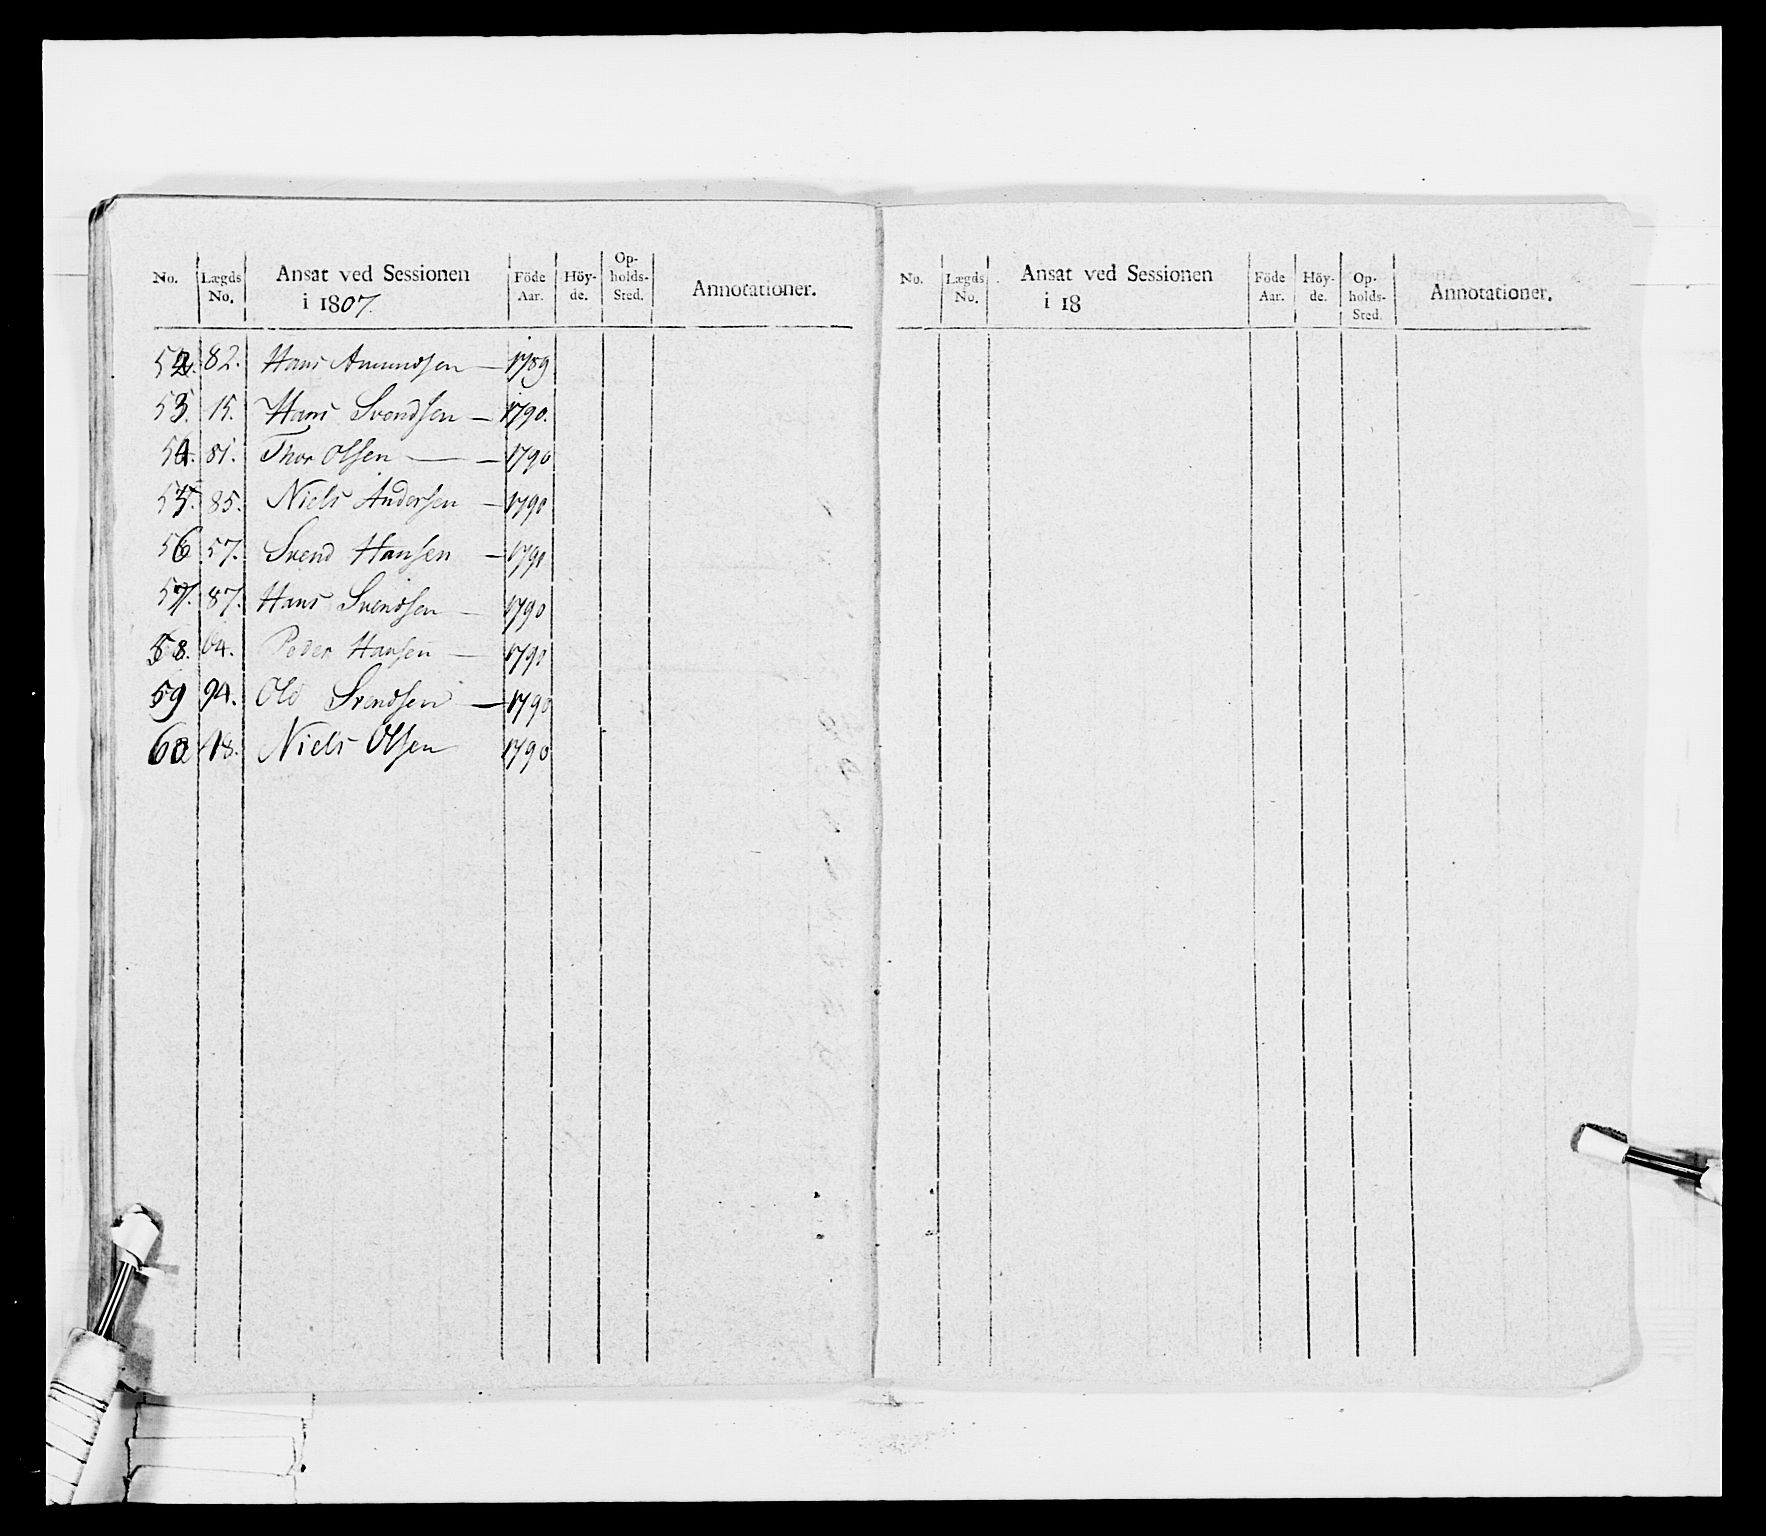 No. Lægds No. Ansat ved Sessionen i 1807. Föde Aar. Höy-de. Op-holds-Sted. Annotationer.
52. 82. Hans Amundsen — 1789
53. 15. Hans Svendsen — 1790.
54. 81. Thor Olsen — — 1790
55. 85. Niels Andersen — 1790
56 57. Svend Hansen — 1790
57. 87. Hans Svendsen — 1790
58. 64. Peder Hansen — 1790
59 94. Ole Svendsen — 1790
60 18. Niels Olsen 1790
No. Lægds No. Ansat ved Sessionen i 18 Föde Aar. Höy-de. Op-holds-Sted. Annotationer.